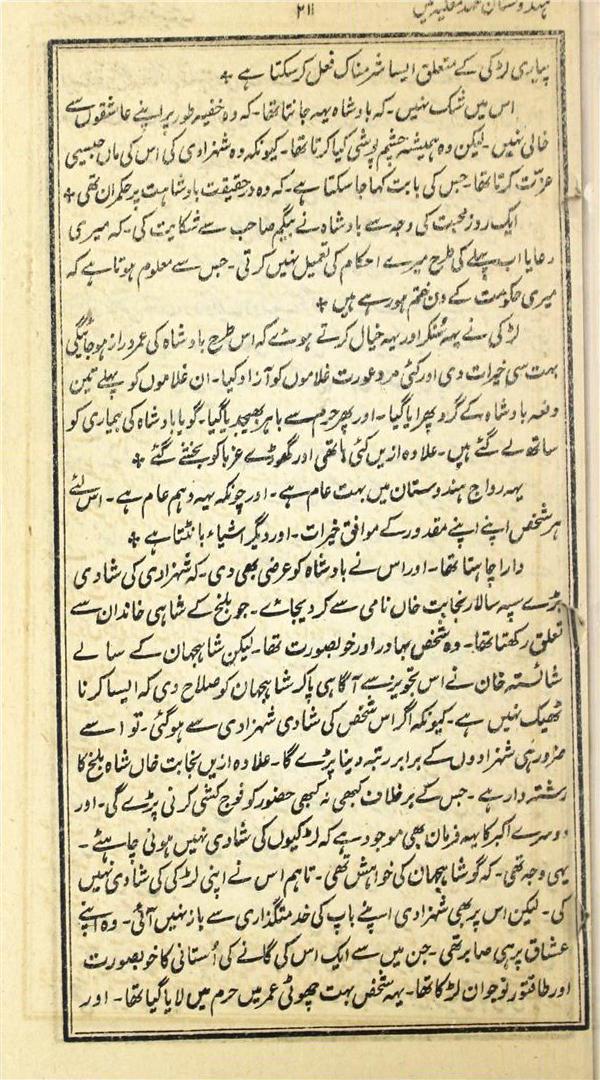 ہندوستان عہد مغلیہ میں
۲۱۱
پیاری لڑکی کے متعلق ایسا شرمناک فعل کر سکتا ہے ٭
اس میں شک نہیں۔ کہ بادشاہ یہہ جانتا تھا۔ کہ وہ خفیہ طور پر اپنے عاشقوں سے
خالی نہیں۔ لیکن وہ ہمیشہ چشم پوشی کیا کرتا تھا۔ کیونکہ وہ شہزادی کی اس کی ماں جیسی
عزت کرتا تھا۔ جس کی بابت کہا جا سکتا ہے۔ کہ وہ درحقیقت بادشاہت پر حکمران تھی ٭
ایک روز محبت کی وجہ سے بادشاہ نے بیگم صاحب سے شکایت کی۔ کہ میری
رعایا اب پہلے کی طرح میرے احکام کی تعمیل نہیں کرتی۔ جس سے معلوم ہوتا ہے کہ
میری حکومت کے دن ختم ہو رہے ہیں ٭
لڑکی نے یہہ سُنکر اور یہہ خیال کرتے ہوئے کہ اس طرح بادشاہ کی عمر دراز ہو جائیگی
بہت سی خیرات دی اور کئی مرد عورت غلاموں کو آزاد کیا۔ ان غلاموں کو پہلے تین
دفعہ بادشاہ کے گرد پھرایا گیا۔ اور پھر حرم سے باہر بھیجدیا گیا۔ گویا بادشاہ کی بیماری کو
ساتھ لے گئے ہیں۔ علاوہ ازیں کئی ہاتھی اور گھوڑے غربا کو بخشے گئے ٭
یہہ رواج ہندوستان میں بہت عام ہے۔ اور چونکہ یہہ وہم عام ہے۔ اس لئے
ہر شخص اپنے اپنے مقدور کے موافق خیرات۔ اور دیگر اشیاء بانٹتا ہے ٭
دارا چاہتا تھا۔ اور اس نے بادشاہ کو عرضی بھی دی۔ کہ شہزادی کی شادی
بڑے سپہ سالار نجابت خاں نامی سے کر دیجائے۔ جو بلخ کے شاہی خاندان سے
تعلق رکھتا تھا۔ وہ شخص بہادر اور خوبصورت تھا۔ لیکن شاہجہان کے سالے
شائستہ خان نے اس تجویز سے آگاہی پا کر شاہجہان کو صلاح دی کہ ایسا کرنا
ٹھیک نہیں ہے۔ کیونکہ اگر اس شخص کی شادی شہزادی سے ہو گئی۔ تو اسے
ضرور ہی شہزادوں کے برابر رتبہ دینا پڑے گا۔ علاوہ ازیں نجابت خاں شاہ بلخ کا
رشتہ دار ہے۔ جس کے برخلاف کبھی نہ کبھی حضور کو فوج کشی کرنی پڑے گی۔ اور
دوسرے اکبر کا یہہ فرمان بھی موجود ہے کہ لڑکیوں کی شادی نہیں ہونی چاہئے۔
یہی وجہ تھی۔ کہ گو شاہجہان کی خواہش تھی۔ تاہم اس نے اپنی لڑکی کی شادی نہیں
کی۔ لیکن اس پر بھی شہزادی اپنے باپ کی خدمتگذاری سے باز نہیں آئی۔ وہ اپنے
عشاق پر ہی صابر تھی۔ جن میں سے ایک اس کی گانے کی اُستانی کا خوبصورت
اور طاقتور نوجوان لڑکا تھا۔ یہہ شخص بہت چھوٹی عمر میں حرم میں لایا گیا تھا۔ اور